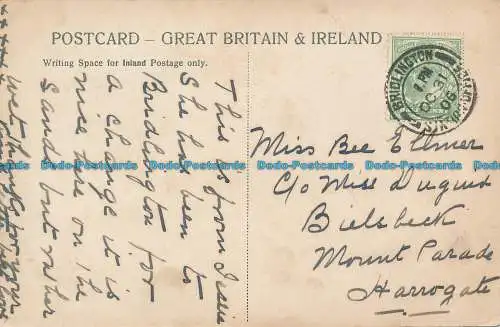 POSTCARD – GREAT BRITAIN & IRELAND
Writing Space for Inland Postage only.
This is from Jessie
She has been to
Bridlington for
a change it is
nice here on the
sand but rather
wet
BRIDLINGTON
OC 31
06
Miss Bee Ellmer
C/o Miss Duguid
Bielsbeck
Mount Parade
Harrogate
Dodo-Postcards Dodo-Postcards Dodo-Postcards Dodo-Postcards Dodo-Postcards